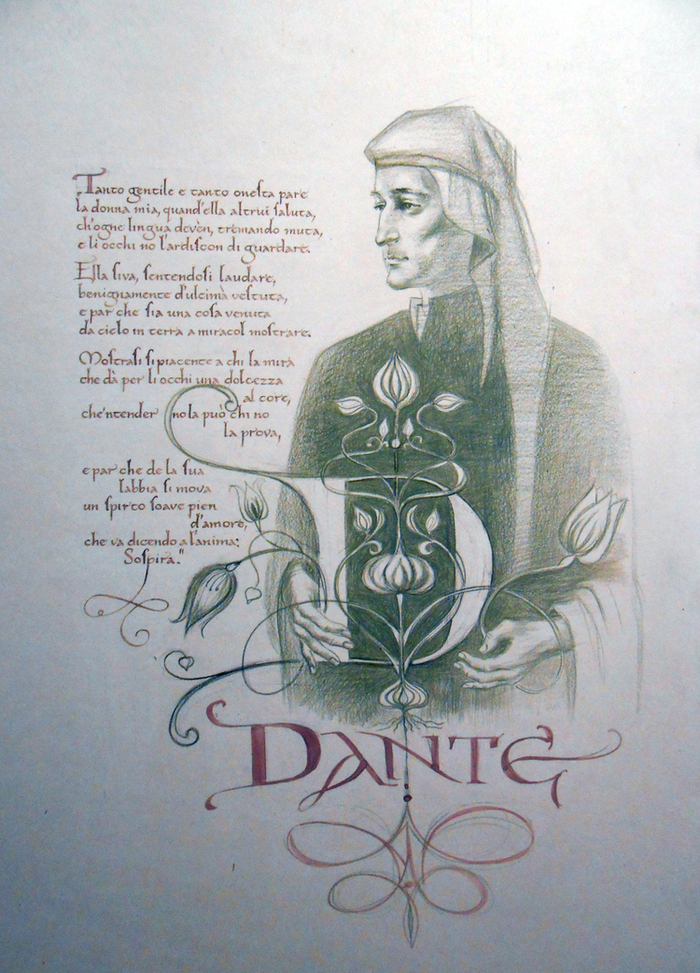 "Tanto gentile e tanto onesta pare
la donna mia, quand'ella altrui saluta,
ch'ogne lingua devèn, tremando muta,
e li occhi no l'ardiscon di guardare.
Ella si va, sentendosi laudare,
benignamente d'ulcimà vestuta,
e par che sia una cosa venuta
da cielo in terra a miracol mostrare.
Mostrasi si piacente a chi la mira
che dà per li occhi una dolcezza
al core,
che 'ntender no la può chi no
la prova,
e par che de la sua
labbia si mova
un spirto soave pien
d'amore,
che va dicendo a l'anima:
Sospira."
DANTE